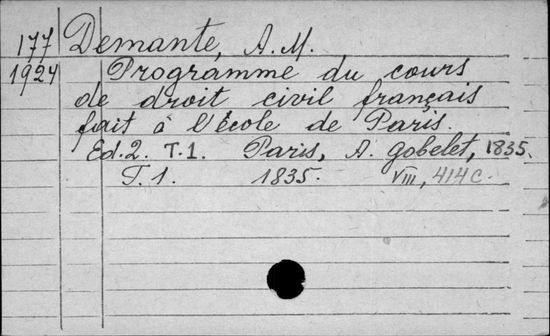 177 Demante, A. M.
1924 Programme du cours
de droit civil français
fait à l'école de Paris.
Ed. 2. T. 1. Paris, A. Gobelet, 1835.
T. 1. 1835. VIII, 414 c.